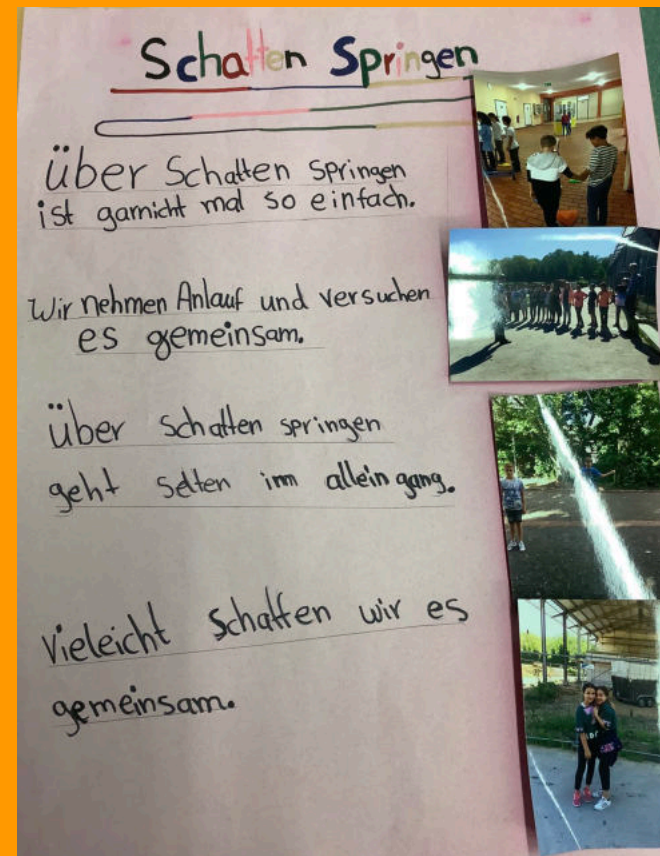 Schatten Springen
über Schatten springen
ist garnicht mal so einfach.
Wir nehmen Anlauf und versuchen
es gemeinsam.
über schatten springen
geht selten im allein gang.
Vieleicht schaffen wir es
gemeinsam.